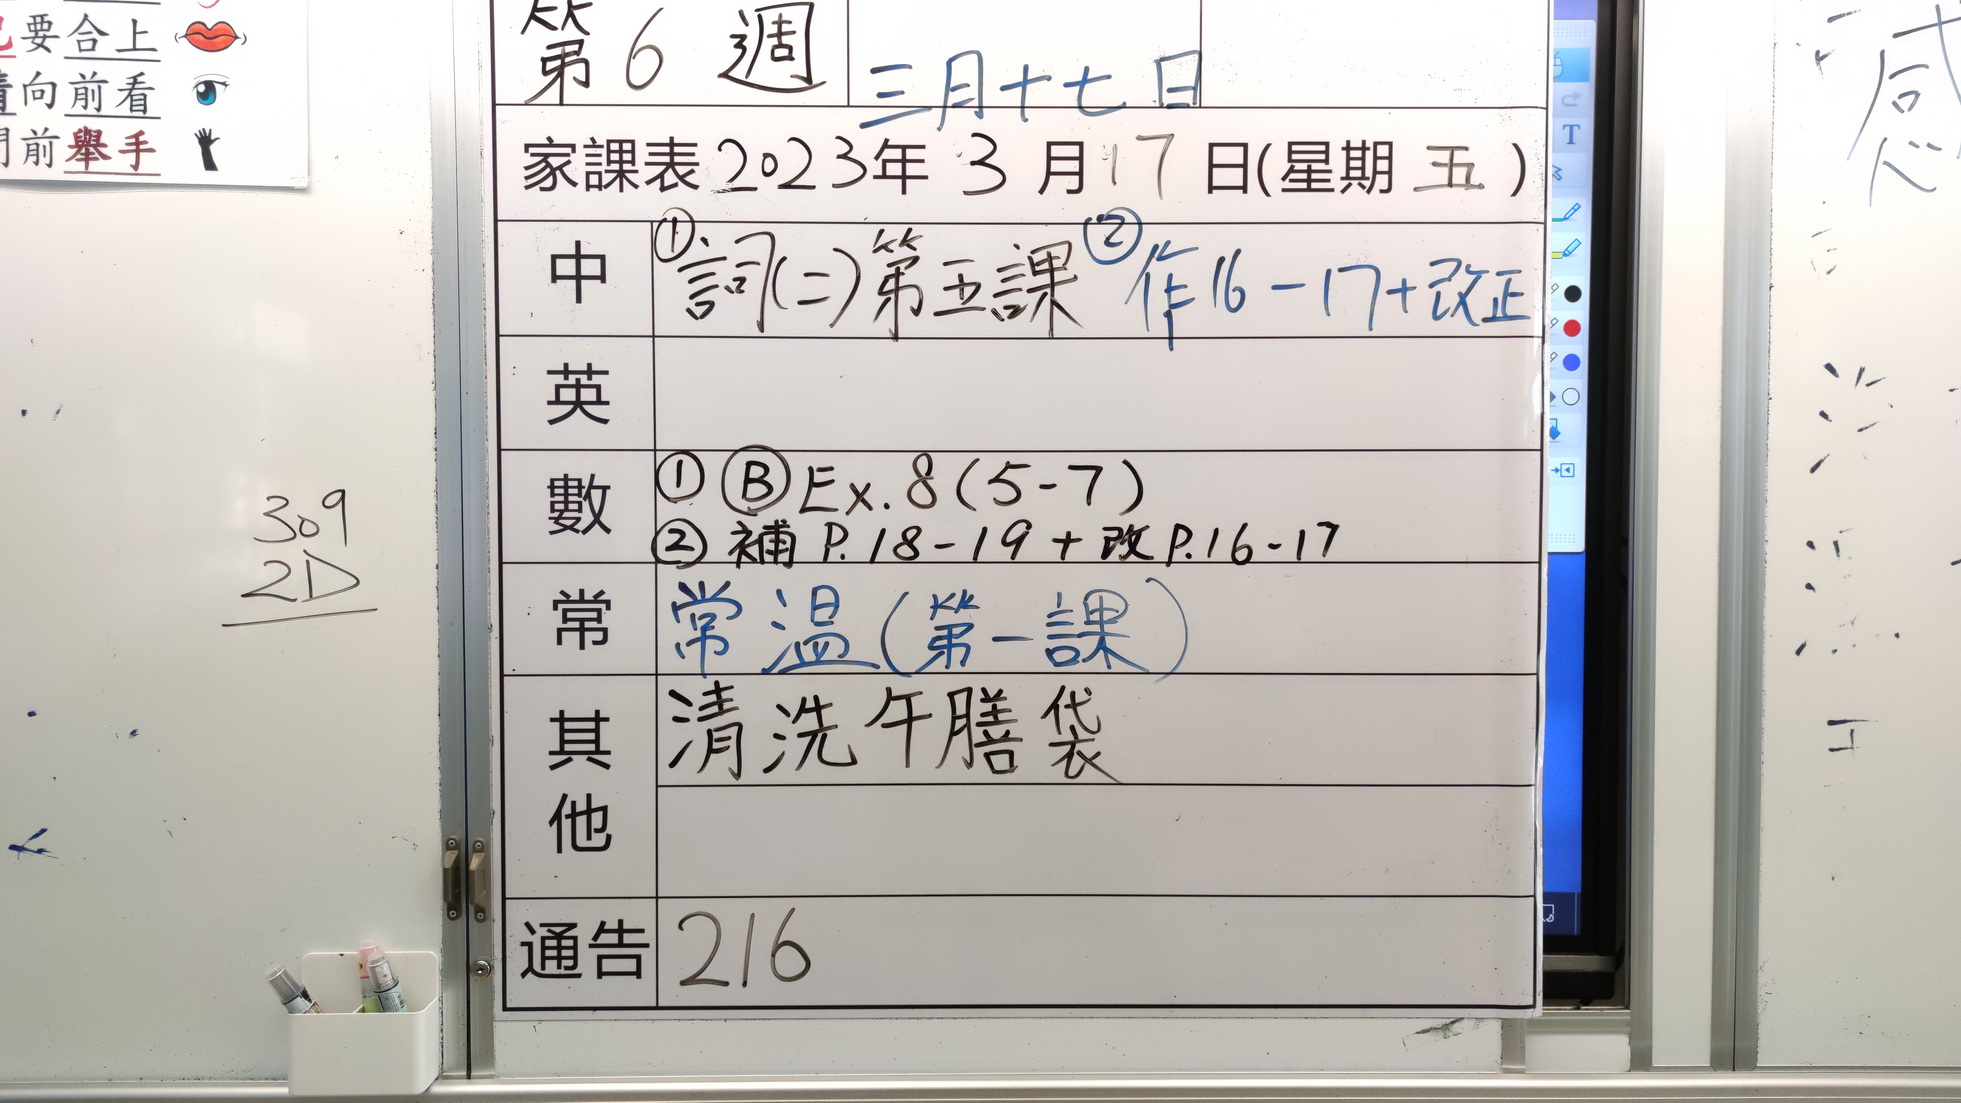 要合上
向前看
前舉手
第6週
三月十七日
家課表2023年3月17日(星期五)
中 ①詞(二)第五課 ②作16-17+改正
英
數 ①Ⓑ Ex.8(5-7)
②補 P.18-19+改 P.16-17
常 常溫(第一課)
其他 清洗午膳袋
通告 216
309
2D
感
T